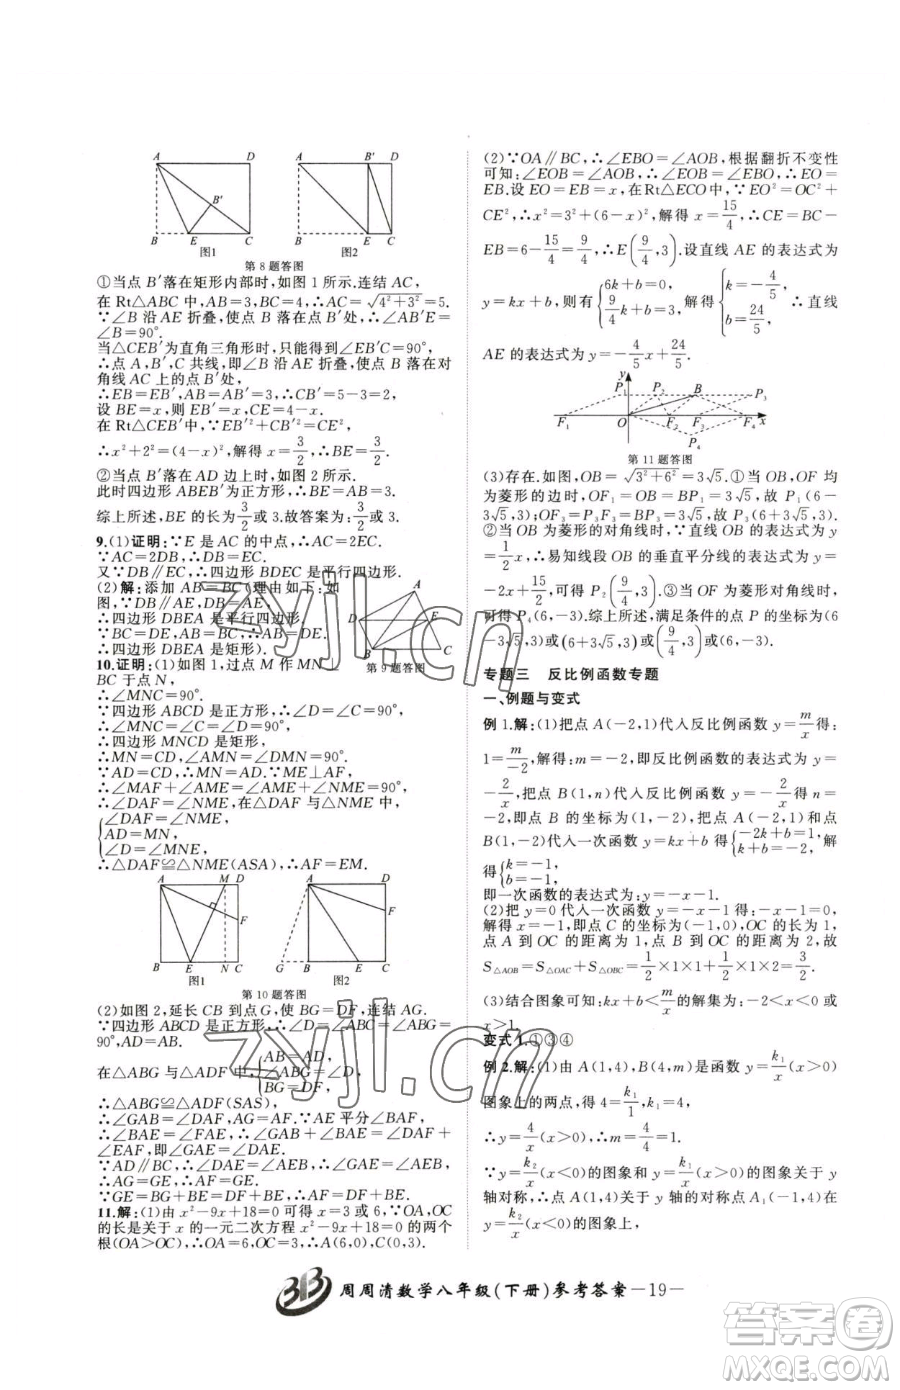 A D
B' D
B'
B E C
图1
B E C
图2
第8题答图
①当点 B′落在矩形内部时,如图 1 所示,连结 AC,
在 Rt△ABC 中,AB=3,BC=4,∴AC=√(4²+3²)=5.
∵∠B 沿 AE 折叠,使点 B 落在点 B′处,∴∠AB′E=
∠B=90°.
当△CEB′为直角三角形时,只能得到∠EB′C=90°,
∴点 A,B′,C 共线,即∠B 沿 AE 折叠,使点 B 落在对
角线 AC 上的点 B′处,
∴EB=EB′,AB=AB′=3,∴CB′=5-3=2,
设 BE=x,则 EB′=x,CE=4-x.
在 Rt△CEB′中,∵EB′²+CB′²=CE²
∴x²+2²=(4-x)²,解得 x=3/2,∴BE=3/2.
②当点 B′落在 AD 边上时,如图 2 所示.
此时四边形 ABEB′为正方形,∴BE=AB=3.
综上所述,BE 的长为3/2或3.故答案为:3/2或3.
9.(1)证明:∵E 是 AC 的中点,∴AC=2EC.
∵AC=2DB,∴DB=EC.
又∵DB∥EC,∴四边形 BDEC 是平行四边形.
(2)解:添加 AB=BC.理由如下:如
图,∵DB∥AE,DB=AE,
∴四边形 DBEA 是平行四边形.
∵BC=DE,AB=BC,∴AB=DE.
∴四边形 DBEA 是矩形.
第9题答图
10.证明:(1)如图 1,过点 M 作 MN⊥
BC 于点 N,
∴∠MNC=90°.
∵四边形 ABCD 是正方形,∴∠D=∠C=90°,
∴∠MNC=∠C=∠D=90°,
∴四边形 MNCD 是矩形,
∴MN=CD,∠AMN=∠DMN=90°.
∵AD=CD,∴AD=MN.∵ME⊥AF,
∴∠MAF+∠AME=∠AME+∠NME=90°,
∴∠DAF=∠NME,在△DAF 与△NME 中,
{∠DAF=∠NME,
AD=MN,
∠D=∠MNE,
∴△DAF≌△NME(ASA),∴AF=EM.
A M D
F
B E N C
图1
A D
F
G B E C
图2
第10题答图
(2)如图 2,延长 CB 到点 G,使 BG=DF,连结 AG.
∵四边形 ABCD 是正方形,∴∠D=∠ABC=∠ABG=
90°,AB=AD.
在△ABG 与△ADF 中,{AB=AD,
∠ABG=∠D,
BG=DF,
∴△ABG≌△ADF(SAS),
∴∠GAB=∠DAF,AG=AF.∵AE 平分∠BAF,
∴∠BAE=∠FAE,∴∠GAB+∠BAE=∠DAF+
∠EAF,即∠GAE=∠DAE.
∵AD∥BC,∴∠DAE=∠AEB,∴∠GAE=∠AEB,
∴AG=GE,∴AF=GE.
∵GE=BG+BE=DF+BE,∴BE+DF=AF.
11.解:(1)由 x²-9x+18=0 可得 x=3 或 6,∵OA,OC
的长是关于 x 的一元二次方程 x²-9x+18=0 的两个
根(OA>OC),∴OA=6,OC=3,∴A(6,0),C(0,3).
(2)∵OA∥BC,∴∠EBO=∠AOB,根据翻折不变性
可知:∠EOB=∠AOB,∴∠EOB=∠EBO,∴EO=
EB.设 EO=EB=x,在 Rt△ECO 中,∵EO²=OC²+
CE²,∴x²=3²+(6-x)²,解得 x=15/4,∴CE=BC-
EB=6-15/4=9/4,∴E(9/4,3).设直线 AE 的表达式为
y=kx+b,则有{6k+b=0, 9/4k+b=3,解得{k=-4/5, b=24/5, ∴直线
AE 的表达式为 y=-4/5x+24/5.
y
P₁ P₂ B P₃
F₁ O F₂ F₄ x
P₄
第11题答图
(3)存在.如图,OB=√(3²+6²)=3√5.①当 OB,OF 均
为菱形的边时,OF₁=OB=BP₁=3√5,故 P₁(6-
3√5,3);OF₃=P₃F₃=BP₃=3√5,故 P₃(6+3√5,3).
②当 OB 为菱形的对角线时,∵直线 OB 的表达式为 y=
1/2x,∴易知线段 OB 的垂直平分线的表达式为 y=
-2x+15/2,可得 P₂(9/4,3).③当 OF 为菱形对角线时,
可得 P₄(6,-3).综上所述,满足条件的点 P 的坐标为(6
-3√5,3)或(6+3√5,3)或(9/4,3)或(6,-3).
专题三 反比例函数专题
一、例题与变式
例 1.解:(1)把点 A(-2,1)代入反比例函数 y=m/x得:
1=m/-2,解得:m=-2,即反比例函数的表达式为:y=
-2/x,把点 B(1,n)代入反比例函数 y=-2/x得 n=
-2,即点 B 的坐标为(1,-2),把点 A(-2,1)和点
B(1,-2)代入一次函数 y=kx+b 得{-2k+b=1, k+b=-2,解
得{k=-1, b=-1,
即一次函数的表达式为:y=-x-1.
(2)把 y=0 代入一次函数 y=-x-1 得:-x-1=0,
解得 x=-1,即点 C 的坐标为(-1,0),OC 的长为 1,
点 A 到 OC 的距离为 1,点 B 到 OC 的距离为 2,故
S△AOB=S△OAC+S△OBC=1/2×1×1+1/2×1×2=3/2.
(3)结合图象可知:kx+b<m/x的解集为:-2<x<0 或
x>1.
变式 1.①③④
例 2.解:(1)由 A(1,4),B(4,m)是函数 y=k₁/x(x>0)
图象上的两点,得 4=k₁/1,k₁=4,
∴y=4/x(x>0),∴m=4/4=1.
∵y=k₂/x(x<0)的图象和 y=k₁/x(x>0)的图象关于 y
轴对称,∴点 A(1,4)关于 y 轴的对称点 A₁(-1,4)在
y=k₂/x(x<0)的图象上,
周周清数学八年级(下册)参考答案 -19-
zyjl.cn
zyjl.cn
答案圈
MXQE.COM